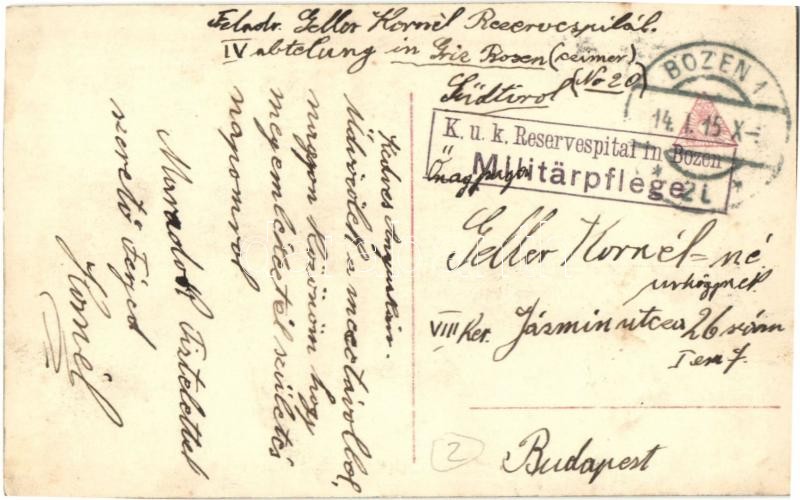 Feladr. Geller Kornél Reservespitál.
IV abtelung in Griz Bozen (zeimer)
Südtirol (No 20)
BOZEN 1
14. I. 15 X-
* 2i
K. u. k. Reservespital in Bozen
Militärpflege
Őnagysága
Geller Kornél=né
urhőgynek
VIII Ker. Jázmin utca 26 szám
I em 7.
Budapest
2
Kedves Anyuskám.
Üdvözlek a messtávolból,
nagyon köszönöm hogy
megemlékeztél születés
napomrol
Maradok tisztelettel
szerető Férjed
Kornél